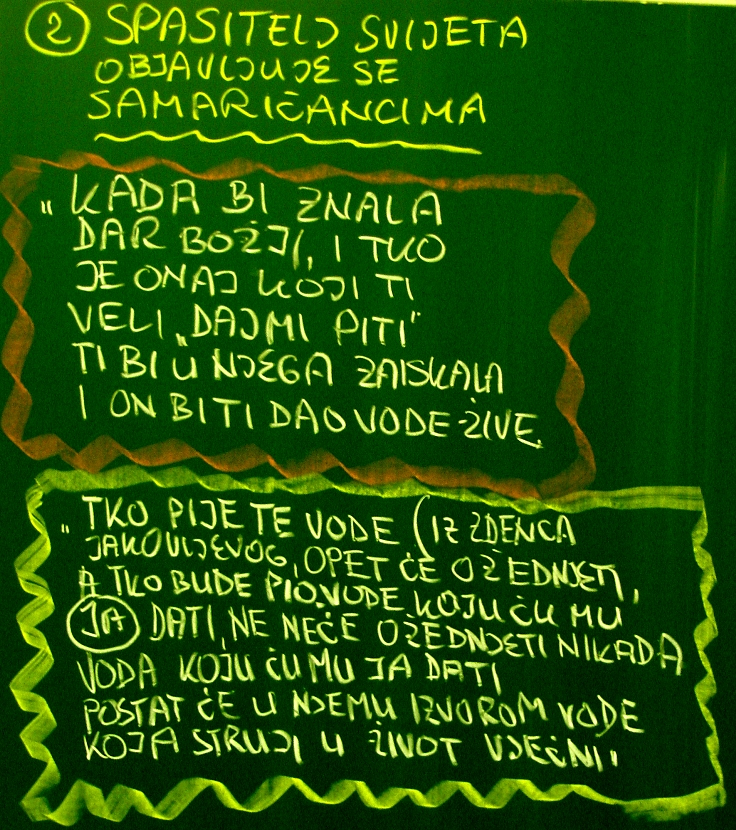 2 SPASITELJ SVIJETA
OBJAVLJUJE SE
SAMARIĆANCIMA
"KADA BI ZNALA
DAR BOŽJI, I TKO
JE ONAJ KOJI TI
VELI "DAJ MI PITI"
TI BI U NJEGA ZAISKALA
I ON BI TI DAO VODE ŽIVE.
"TKO PIJE TE VODE (IZ ZDENCA
JAKOVLJEVOG, OPET ĆE OŽEDNJETI,
A TKO BUDE PIO VODE KOJU ĆU MU
JA DATI, NE NEĆE OŽEDNJETI NIKADA
VODA KOJU ĆU MU JA DATI
POSTAT ĆE U NJEMU IZVOROM VODE
KOJA STRUJI U ŽIVOT VJEČNI"